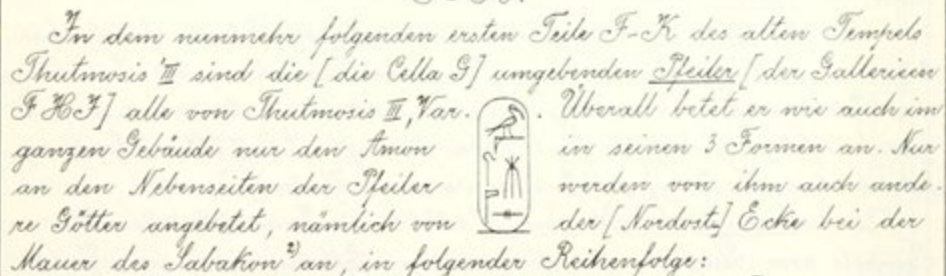 In dem nunmehr folgenden ersten Teile F-K des alten Tempels
Thutmosis' III sind die [die Cella G] umgebenden Pfeiler [der Gallerieen
F H J] alle von Thutmosis III, Var. . Überall betet er wie auch im
ganzen Gebäude nur den Amon in seinen 3 Formen an. Nur
an den Nebenseiten der Pfeiler werden von ihm auch ande-
re Götter angebetet, nämlich von der [Nordost-] Ecke bei der
Mauer des Sabakon ²) an, in folgender Reihenfolge: